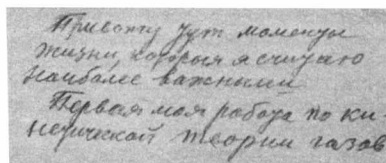 Привожу тут моменты
жизни, которыя я считаю
наиболее важными
Первая моя работа по ки-
нетической теории газов